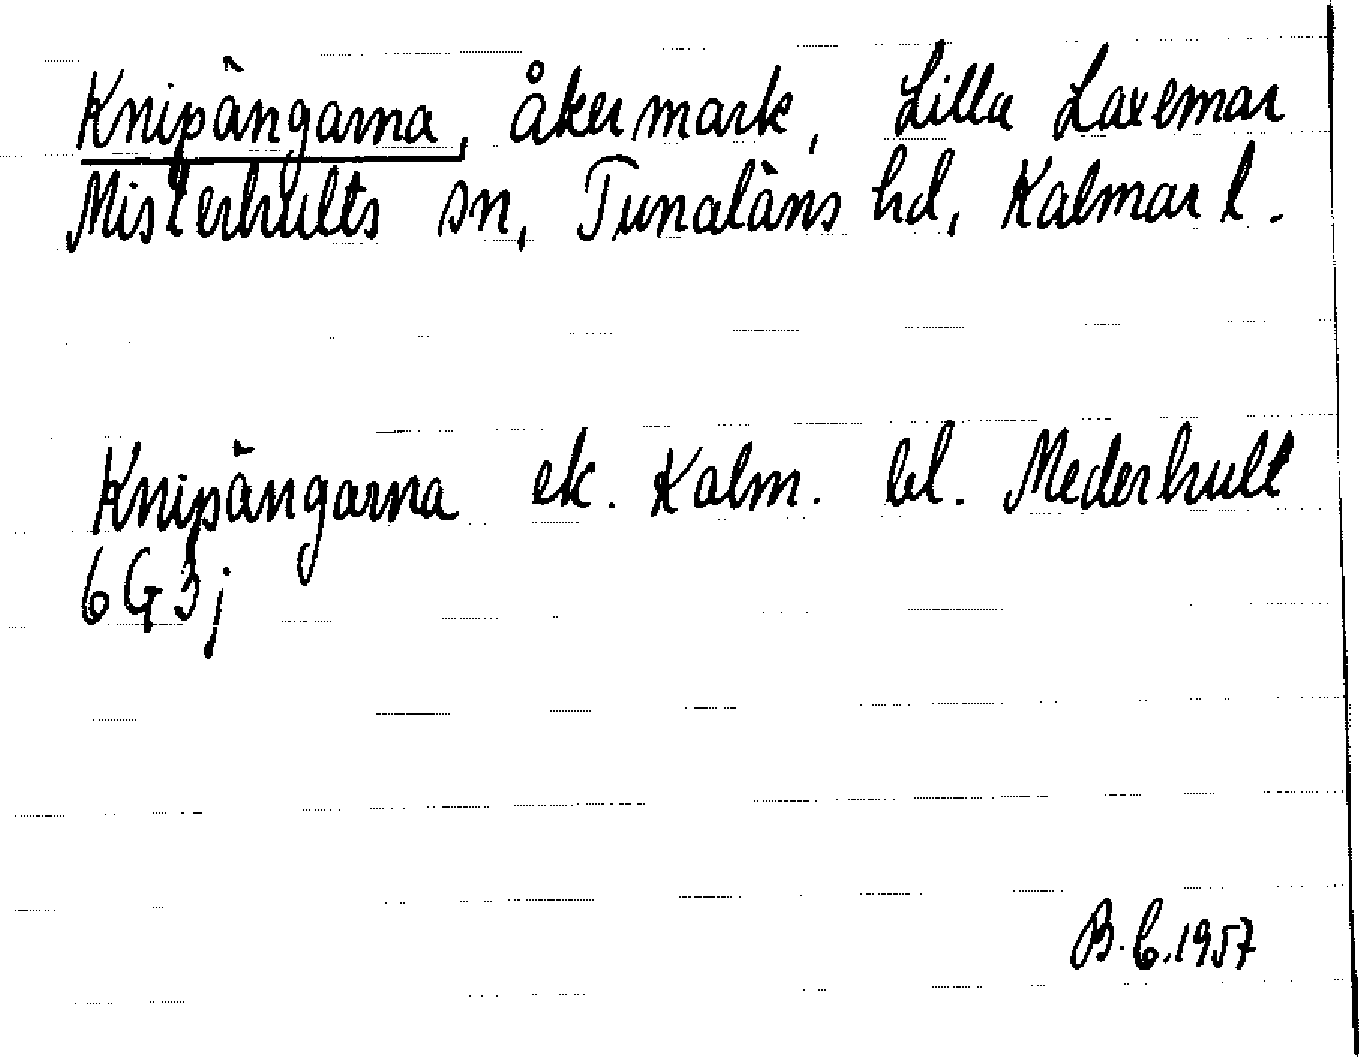 Knipängarna, åkermark, Lilla Laxemar
Misterhults sn, Tunaläns hd, Kalmar l.
Knipängarna ek. Kalm. bl. Mederhult
6G3j
B.C.1957